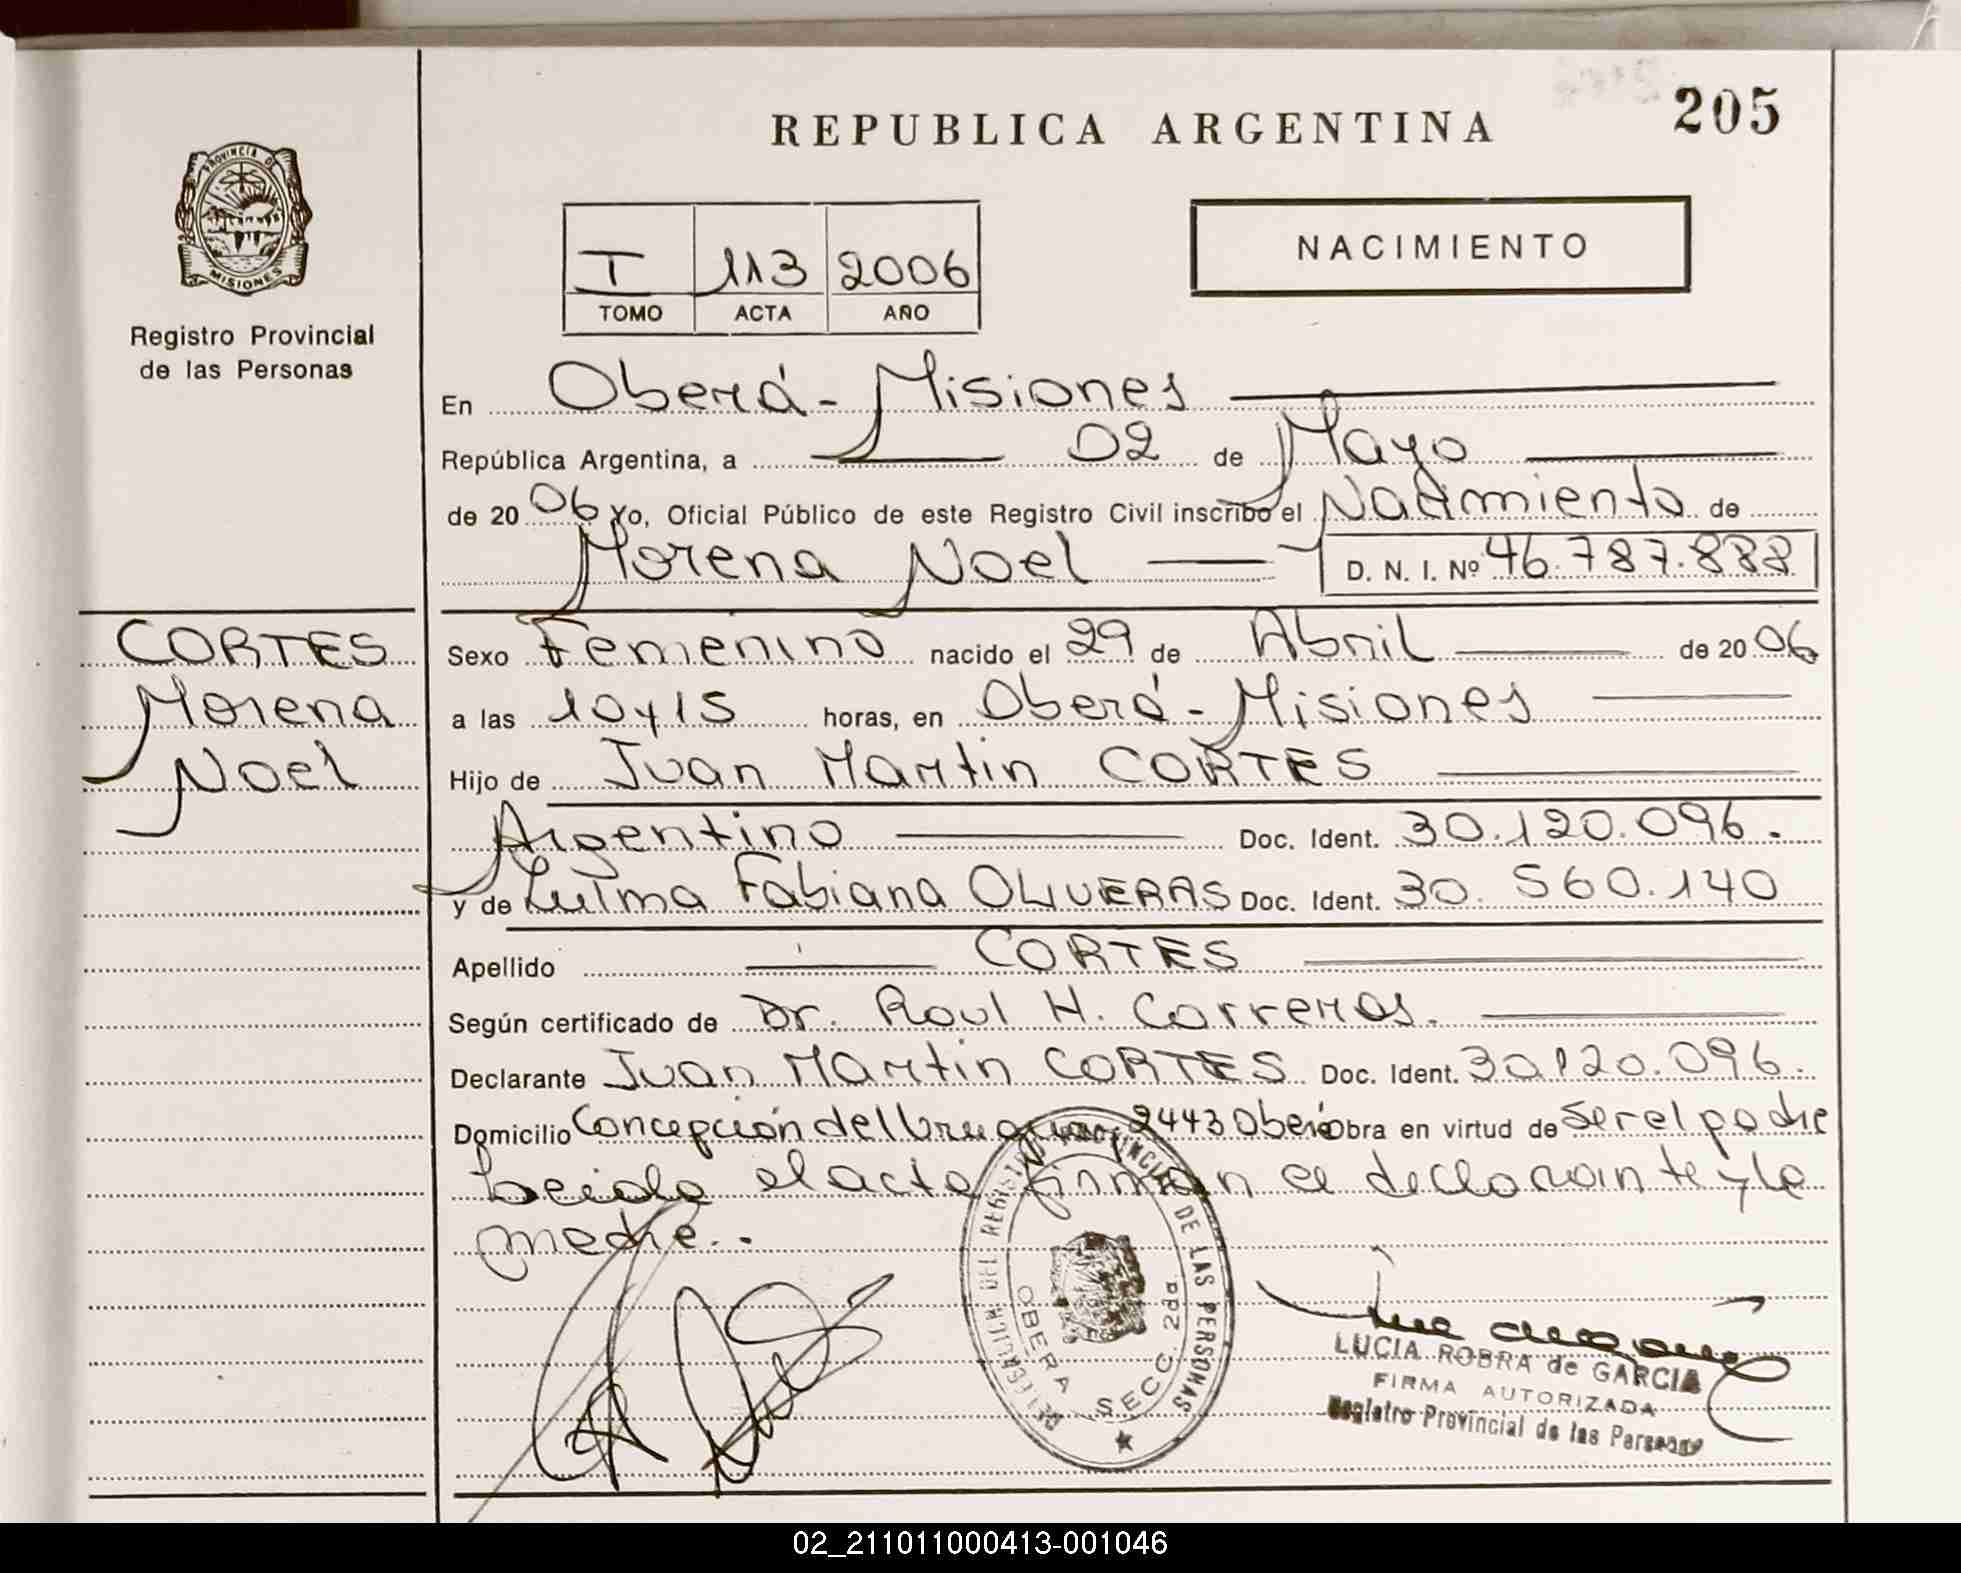 205
REPUBLICA ARGENTINA
PROVINCIA DE
MISIONES
Registro Provincial
de las Personas
NACIMIENTO
I 113 2006
TOMO ACTA AÑO
En Oberá - Misiones
República Argentina, a 02 de Mayo
de 20 06 Yo, Oficial Público de este Registro Civil inscribo el Nacimiento de
Morena Noel D. N. I. Nº 46.787.888
CORTES
Morena
Noel
Sexo Femenino nacido el 29 de Abril de 20 06
a las 10 y 15 horas, en Oberá - Misiones
Hijo de Juan Martin CORTES
Argentino Doc. Ident. 30.120.096.
y de Zulma Fabiana OLIVERAS Doc. Ident. 30.560.140
Apellido CORTES
Según certificado de Dr. Raul H. Carreras.
Declarante Juan Martin CORTES Doc. Ident. 30.120.096.
Domicilio Concepción del Uruguay 2443 Oberá Obra en virtud de ser el padre
Leida el acta firman el declarante y la
madre..
DELEGACION DEL REGISTRO PROVINCIAL DE LAS PERSONAS
OBERA SECC. 2da.
LUCIA ROBRA de GARCIA
FIRMA AUTORIZADA
Registro Provincial de las Personas
02_211011000413-001046